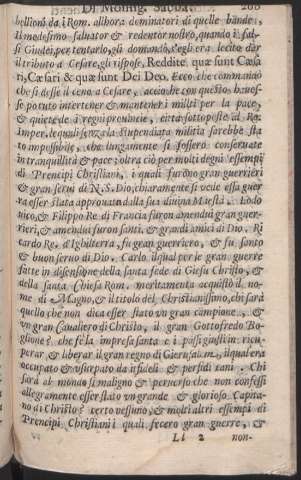 Di Monsig. Sacbat.
bellioni da i Rom. allhora dominatori di quelle bande,
Il medesimo saluator & redentor nostro, quando i fal-
si Giudei, per tentarlo, gli domandò, s'egli era lecito dar
il tributo a Cesare, gli rispose, Reddite quæ sunt Cæsa
ri, Cæsari & quæ sunt Dei Deo. Ecco che commandò
che si desse il cens a Cesare, acciò che con questo haues-
se potuto intertener & mantener i militi per la pace,
& quiete de i regni prouincie, città sottoposte al Ro.
Imper. lequali senza la stupendiata militia sarebbe sta
to impossibile, che lungamente si fossero conseruate
in tranquillità & pace: oltra ciò per molti degni essempi
di Prencipi Christiani, i quali furono gran guerrieri
& gran serui di N. S. Dio, chiaramente si vede essa guer
ra esser stata approuata dalla sua diuina Maestà. Lodo
uico, & Filippo Re di Francia furon amendui gran guer-
rieri, & amendui furon santi, & grandi amici di Dio. Ri
cardo Re d'Ighilterra, fù gran guerriero, & fu santo
& buon seruo di Dio. Carlo ilqual per le gran guerre
fatte in disensione della santa fede di Giesu Christo, &
della santa Chiesa Rom. meritamenta acquistò il no-
me di Magno, & il titolo del Christianissimo, chi sarà
quello che non dica esser stato vn gran campione, &
vn gran Caualiero di Christo, il gran Gottofredo Bo-
glione? che fè la impresa santa e i passi giusti in ricu-
perar & liberar il gran regno di Gierusalem, ilqual era
occupato & vsurpato da infideli & persidi cani. Chi
sarà al mondo sì maligno & peruerso che non confessi
allegramente esser stato vn grande & glorioso Capita-
no di Christo? certo nessuno, & molti altri essempi di
Prencipi Christiani i quali fecero gran guerre, &
Ll 2 non-